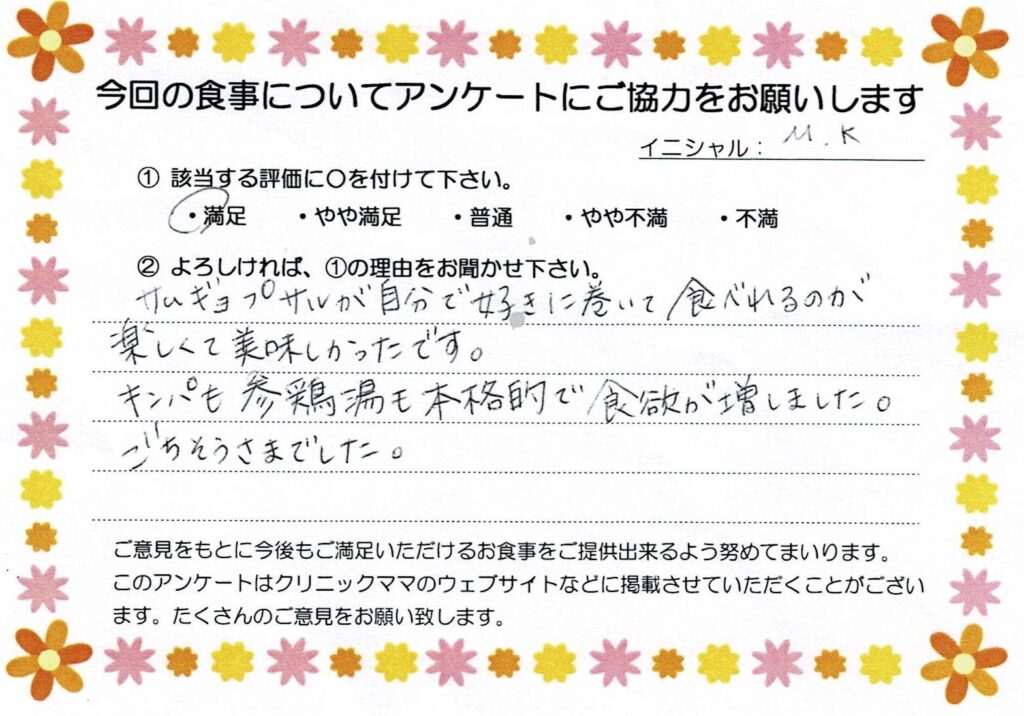 今回の食事についてアンケートにご協力をお願いします
イニシャル： M.K
① 該当する評価に〇を付けて下さい。
・満足 ・やや満足 ・普通 ・やや不満 ・不満
② よろしければ、①の理由をお聞かせ下さい。
サムギョプサルが自分で好きに巻いて食べれるのが
楽しくて美味しかったです。
キンパも参鶏湯も本格的で食欲が増しました。
ごちそうさまでした。
ご意見をもとに今後もご満足いただけるお食事をご提供出来るよう努めてまいります。
このアンケートはクリニックママのウェブサイトなどに掲載させていただくことがござい
ます。たくさんのご意見をお願い致します。